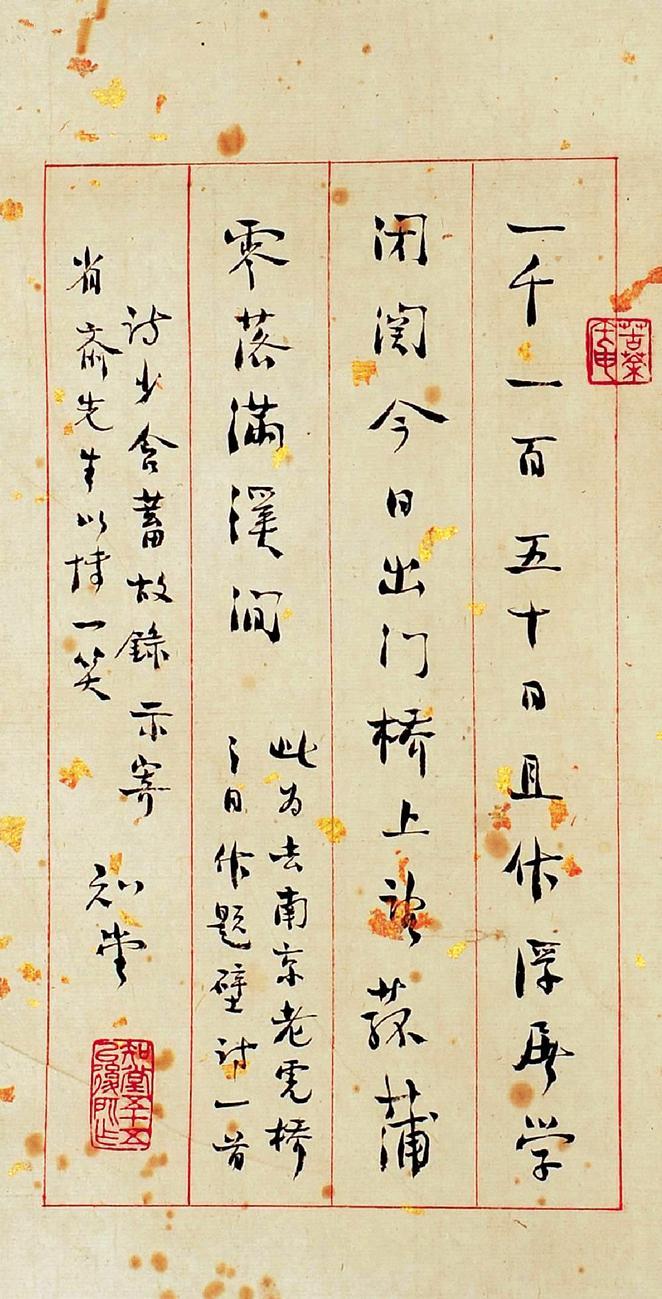 苦茶庵
一千一百五十日且作浮屠学
闭関今日出门桥上望菰蒲
零落满溪间
此为去南京老虎桥
之日作题壁诗一首
诗少含蓄故録示寄
省斎先生以博一笑
知堂
知堂五十五
已後所作